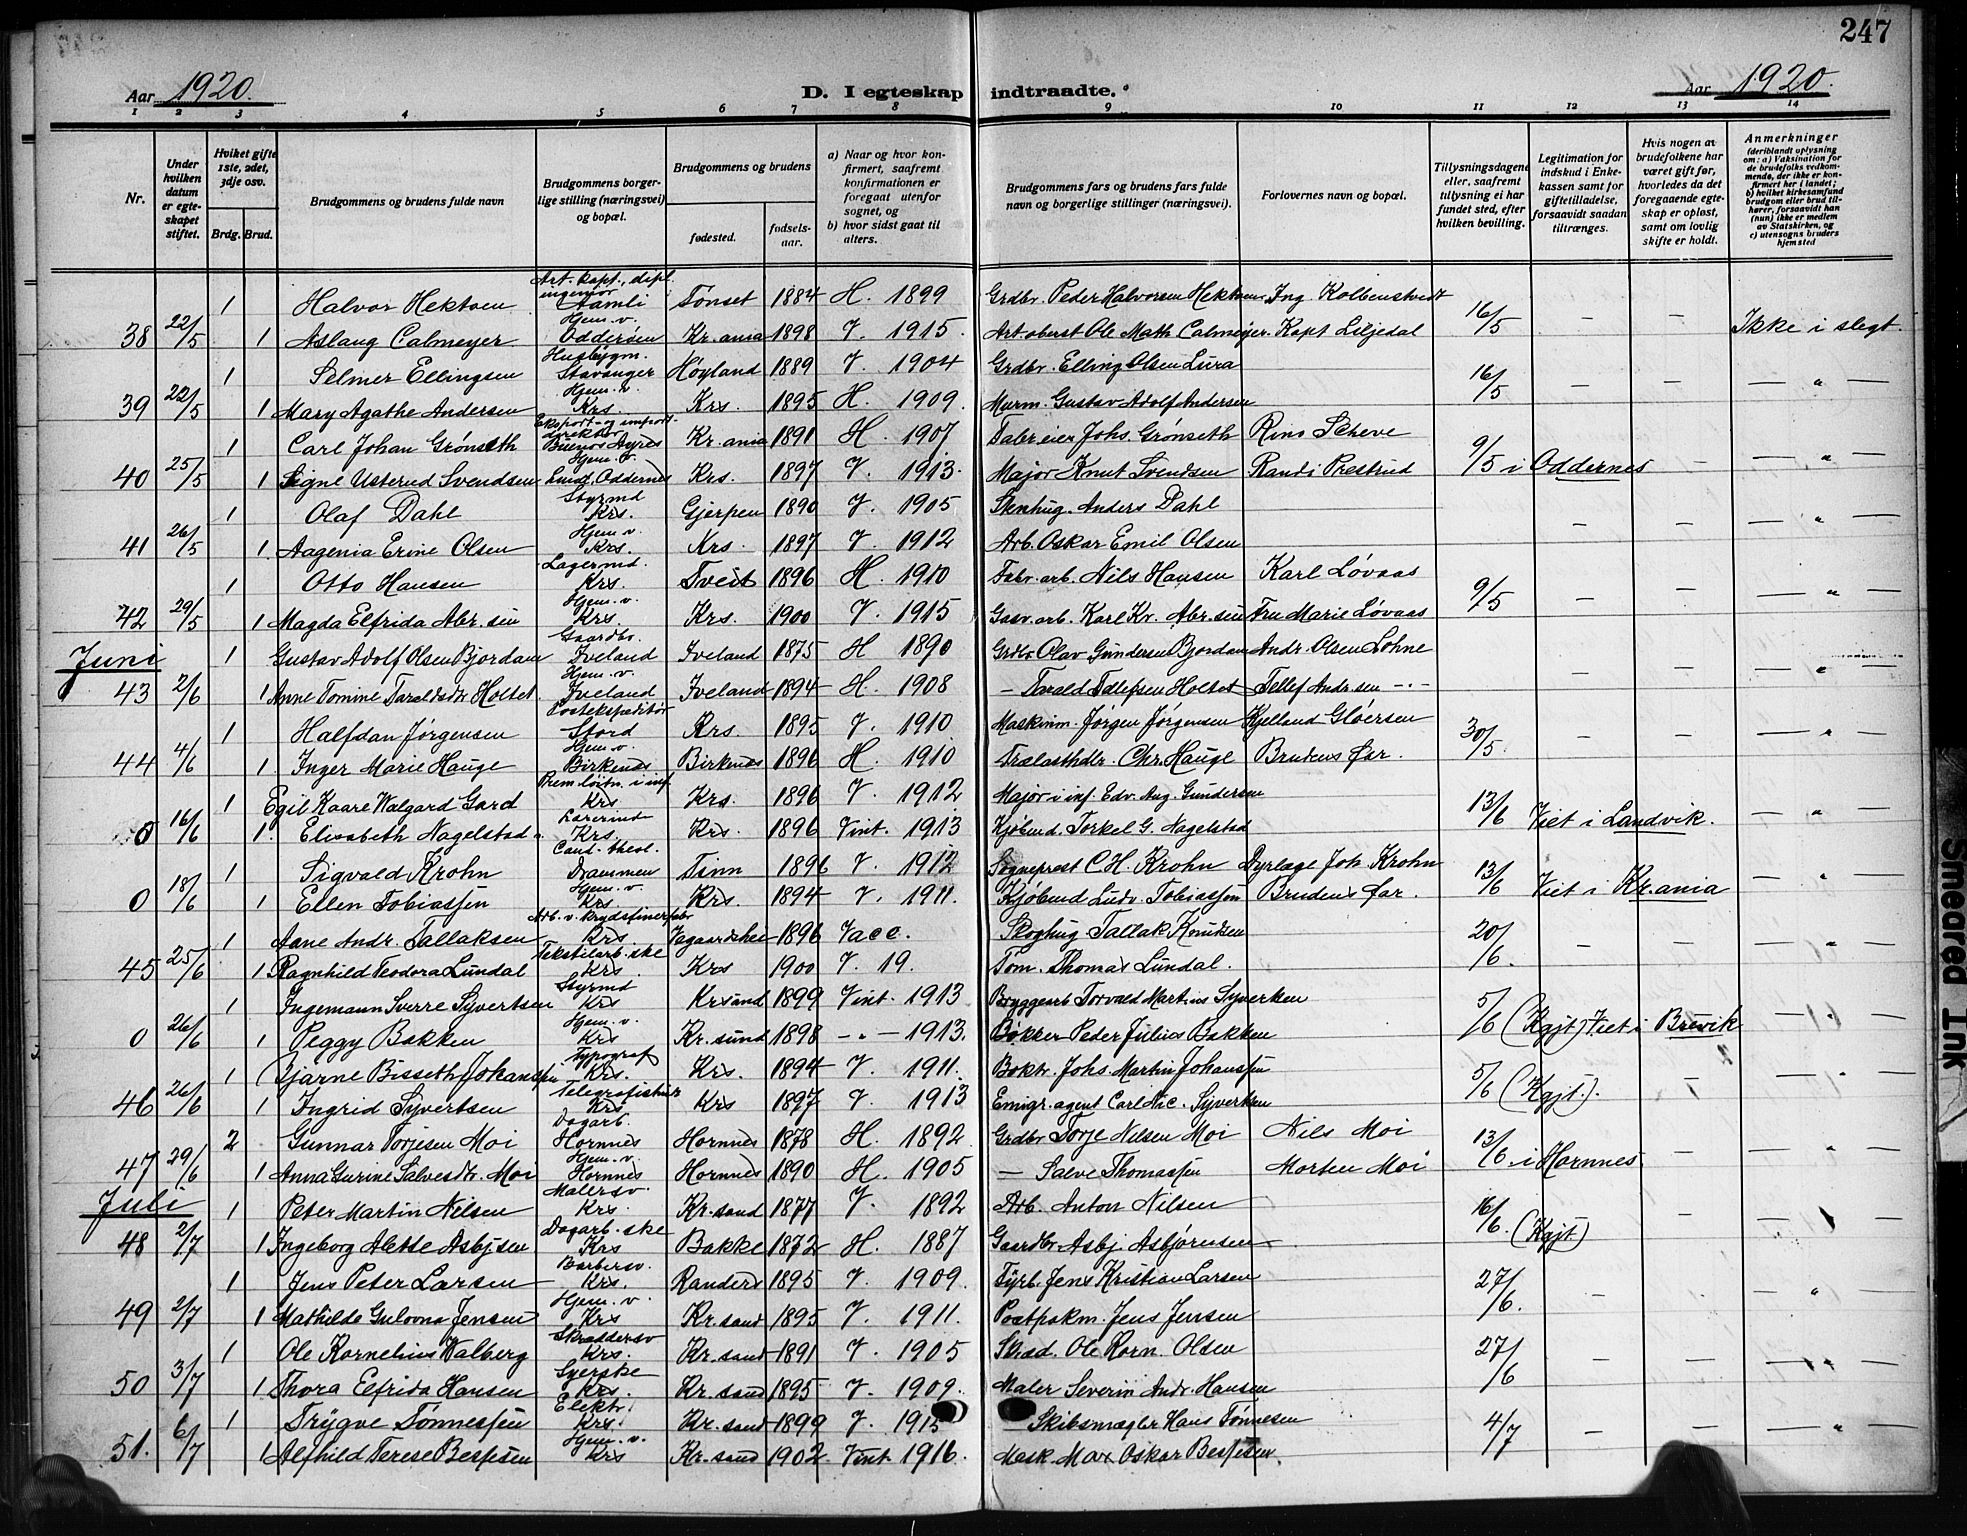 247
Aar 1920. D. I egteskap indtraadte. Aar 1920.
1 2 3 4 5 6 7 8 9 10 11 12 13 14
Nr.
Under hvilken datum er egteskapet stiftet.
Hviket gifte 1ste, 2det, 3dje osv.
Brdg. Brud.
Brudgommens og brudens fulde navn
Brudgommens borgerlige stilling (næringsvei) og bopæl.
Brudgommens og brudens
fødested. fødselsaar.
a) Naar og hvor konfirmert, saafremt konfirmationen er foregaat utenfor sognet, og
b) hvor sidst gaat til alters.
Brudgommens fars og brudens fars fulde navn og borgerlige stillinger (næringsvei).
Forlovernes navn og bopæl.
Tillysningsdagene eller, saafremt tillysning ei har fundet sted, efter hvilken bevilling.
Legitimation for indskud i Enkekassen samt for giftetilladelse, forsaavidt saadan tiltrænges.
Hvis nogen av brudefolkene har været gift før, hvorledes da det foregaaende egteskap er opløst, samt om lovlig skifte er holdt.
Anmerkninger
(deriblandt oplysning om: a) Vaksination for de brudefolks vedkommende, der ikke er konfirmert her i landet; b) hvilket kirkesamfund brudgom eller brud tilhører, forsaavidt han (hun) ikke er medlem av Statskirken, og c) utensogns bruders hjemsted
1 Halvor Hektoen Art. kapt., dipl. ingeniør Aamli Tönset 1884 H. 1899 Grdbr. Peder Halvorsen Hektoen Ing. Kolbenstvedt
38 22/5 1 Aslaug Calmeyer Hjem. v. Odderøen Kr.ania 1898 V. 1915. Art. oberst Ole Math. Calmeyer. Kapt Liljedal 16/5 – – Ikke i slegt.
1 Selmer Ellingsen Husbygm. Stavanger Høyland 1889 V. 1904 Grdbr. Elling Olsen Lura
39 22/5 1 Mary Agathe Andersen Hjem. v. Krs. Krs. 1895 H. 1909. Murm. Gustav Adolf Andersen 16/5 – – — " —
1 Carl Johan Grönseth Eksport- og import-direktør Buenos Ayres Kr.ania 1891 H. 1907 Fabr.eier Johs. Grönseth Rino Scheve
40 25/5 1 Signe Usterud Svendsen Hjem. v. Lund, Oddernes Krs. 1897 V. 1913. Major Knut Svendsen Randi Prestrud 9/5 i Oddernes – — " —
1 Olaf Dahl Styrmd Krs. Gjerpen 1890 V. 1905 Stenhug. Anders Dahl
41 26/5 1 Aagenia Erine Olsen Hjem v. Krs. Krs. 1897 V. 1912 Arb. Oskar Emil Olsen – – — " —
1 Otto Hansen Lagermd. Krs. Tveit 1896 H. 1910 Fabr. arb. Nils Hansen Karl Løvaas
42 29/5 1 Magda Elfrida Abr.sen Hjem. v. Krs. Krs. 1900 V. 1915 Gasv. arb. Karl Kr. Abr.sen Fru Marie Løvaas 9/5 – – — " —
Juni
1 Gustav Adolf Olsen Bjordam Gaardbr. Iveland Iveland 1875 H 1890 Grdbr Olav Gundersen Bjordam Andr. Olsen Lohne
43 2/6 1 Anne Tomine Taraldsdtr Holtet Hjem. v. Iveland Iveland 1894 H. 1908 – Tarald Tellefsen Holtet Tellef Andr.sen –"– – – — " —
1 Halfdan Jørgensen Postekspeditør Stord Krs. 1895 V. 1910 Maskinm. Jørgen Jørgensen Kjelland Gløersen
44 4/6 1 Inger Marie Hauge Hjem v. Birkenes Birkenes 1896 H. 1910 Trælasthdlr. Chr. Hauge Brudens far. 30/5. – – — " —
1 Egil Kaare Walgard Gard Prem. løitn. i inf. Krs Krs. 1896 V. 1912 Major i inf. Edv. Aug. Gundersen
0 16/6 1. Elisabeth Nagelstad Lærerinde Krs. Krs. 1896 Vint. 1913 Kjøbmd. Torkel G. Nagelstad 13/6 Viet i Landvik. — " —
1 Sigvald Krohn Cand. theol. Drammen Tinn 1896 V. 1912 Sogneprest C. H. Krohn Dyrlæge Joh. Krohn
0 18/6 1 Ellen Tobiassen Hjem. v. Krs. Krs. 1894 V. 1911. Kjøbmd Ludv. Tobiassen Brudens far. 13/6 Viet i Kr.ania — " —
1 Aane Andr. Tallaksen Arb. v. Krydsfinerfabr Krs. Vegaardshei 1896 Vacc. Skoghug Tallak Knudsen
45 25/6 1 Ragnhild Teodora Lundal Tekstilarb.ske Krs Krs 1900 V. 19. Tøm. Thomas Lundal. 20/6. – – — " —
1 Ingemann Sverre Syvertsen Styrmd Krs Krsand 1899 Vint. 1913 Bryggearb Torvald Martius Syvertsen
0 26/6 1 Peggy Bakken Hjem. v. Krs Kr.sund 1898 –"– 1913. Bakker Peder Julius Bakken 5/6 (Kgjt.) Viet i Brevik
1 Bjarne Bisseth Johanssen Typograf Krs. Krs. 1894 V. 1911. Boktr. Johs. Martin Johanssen
46 26/6 1 Ingrid Syvertsen Telegrafistinde Krs Krs 1897 V. 1913 Emigr. agent Carl Nic. Syvertsen 5/6 (Kgjt.).
2 Gunnar Torjesen Moi Dagarb. Hornnes Hornnes 1878 H. 1892. Grdbr Torje Nilsen Moi Nils Moi
47 29/6 1 Anna Gurine Salvesdtr. Moi Hjem. v. Hornnes Hornnes 1890 H. 1905 – Salve Thomassen Morten Moi 13/6. i Hornnes. – — " —
Juli
1 Peter Martin Nilsen Malersv. Krs. Kr.sand 1877 V. 1892 Arb. Anton Nilsen
48 2/7 1 Ingeborg Alette Asbj.sen Dagarb.ske Krs Bakke 1872 H. 1887 Gaardbr Asbj. Asbjørnsen 16/6. (Kgjt)
1 Jens Peter Larsen Barbersv. Krs. Randers 1895 V. 1909. Fyrb. Jens Kristian Larsen
49 2/7 1 Mathilde Gulovna Jensen Hjem. v. Krs Kr.sand 1895 V. 1911. Postpakm. Jens Jensen 27/6. – – — " —
1 Ole Kornelius Walberg Skræddersv Krs. Kr.sand 1891 V. 1905 Skræd. Ole Korn. Olsen
50 3/7 1 Thora Elfrida Hansen Syerske Krs. Kr.sand 1895 V. 1909. Maler Severin Andr. Hansen 27/6 – – — " —
1 Trygve Tönnessen Elektr. Krs. Kr.sand 1899 V. 1915 Skibsmægler Hans Tönnesen
51. 6/7 1 Alfhild Terese Bessesen Hjem. v. Krs Kr.sand 1902. Vint. 1916. Mask. Max Oskar Bessesen. 4/7 – – — " —
Smeared Ink